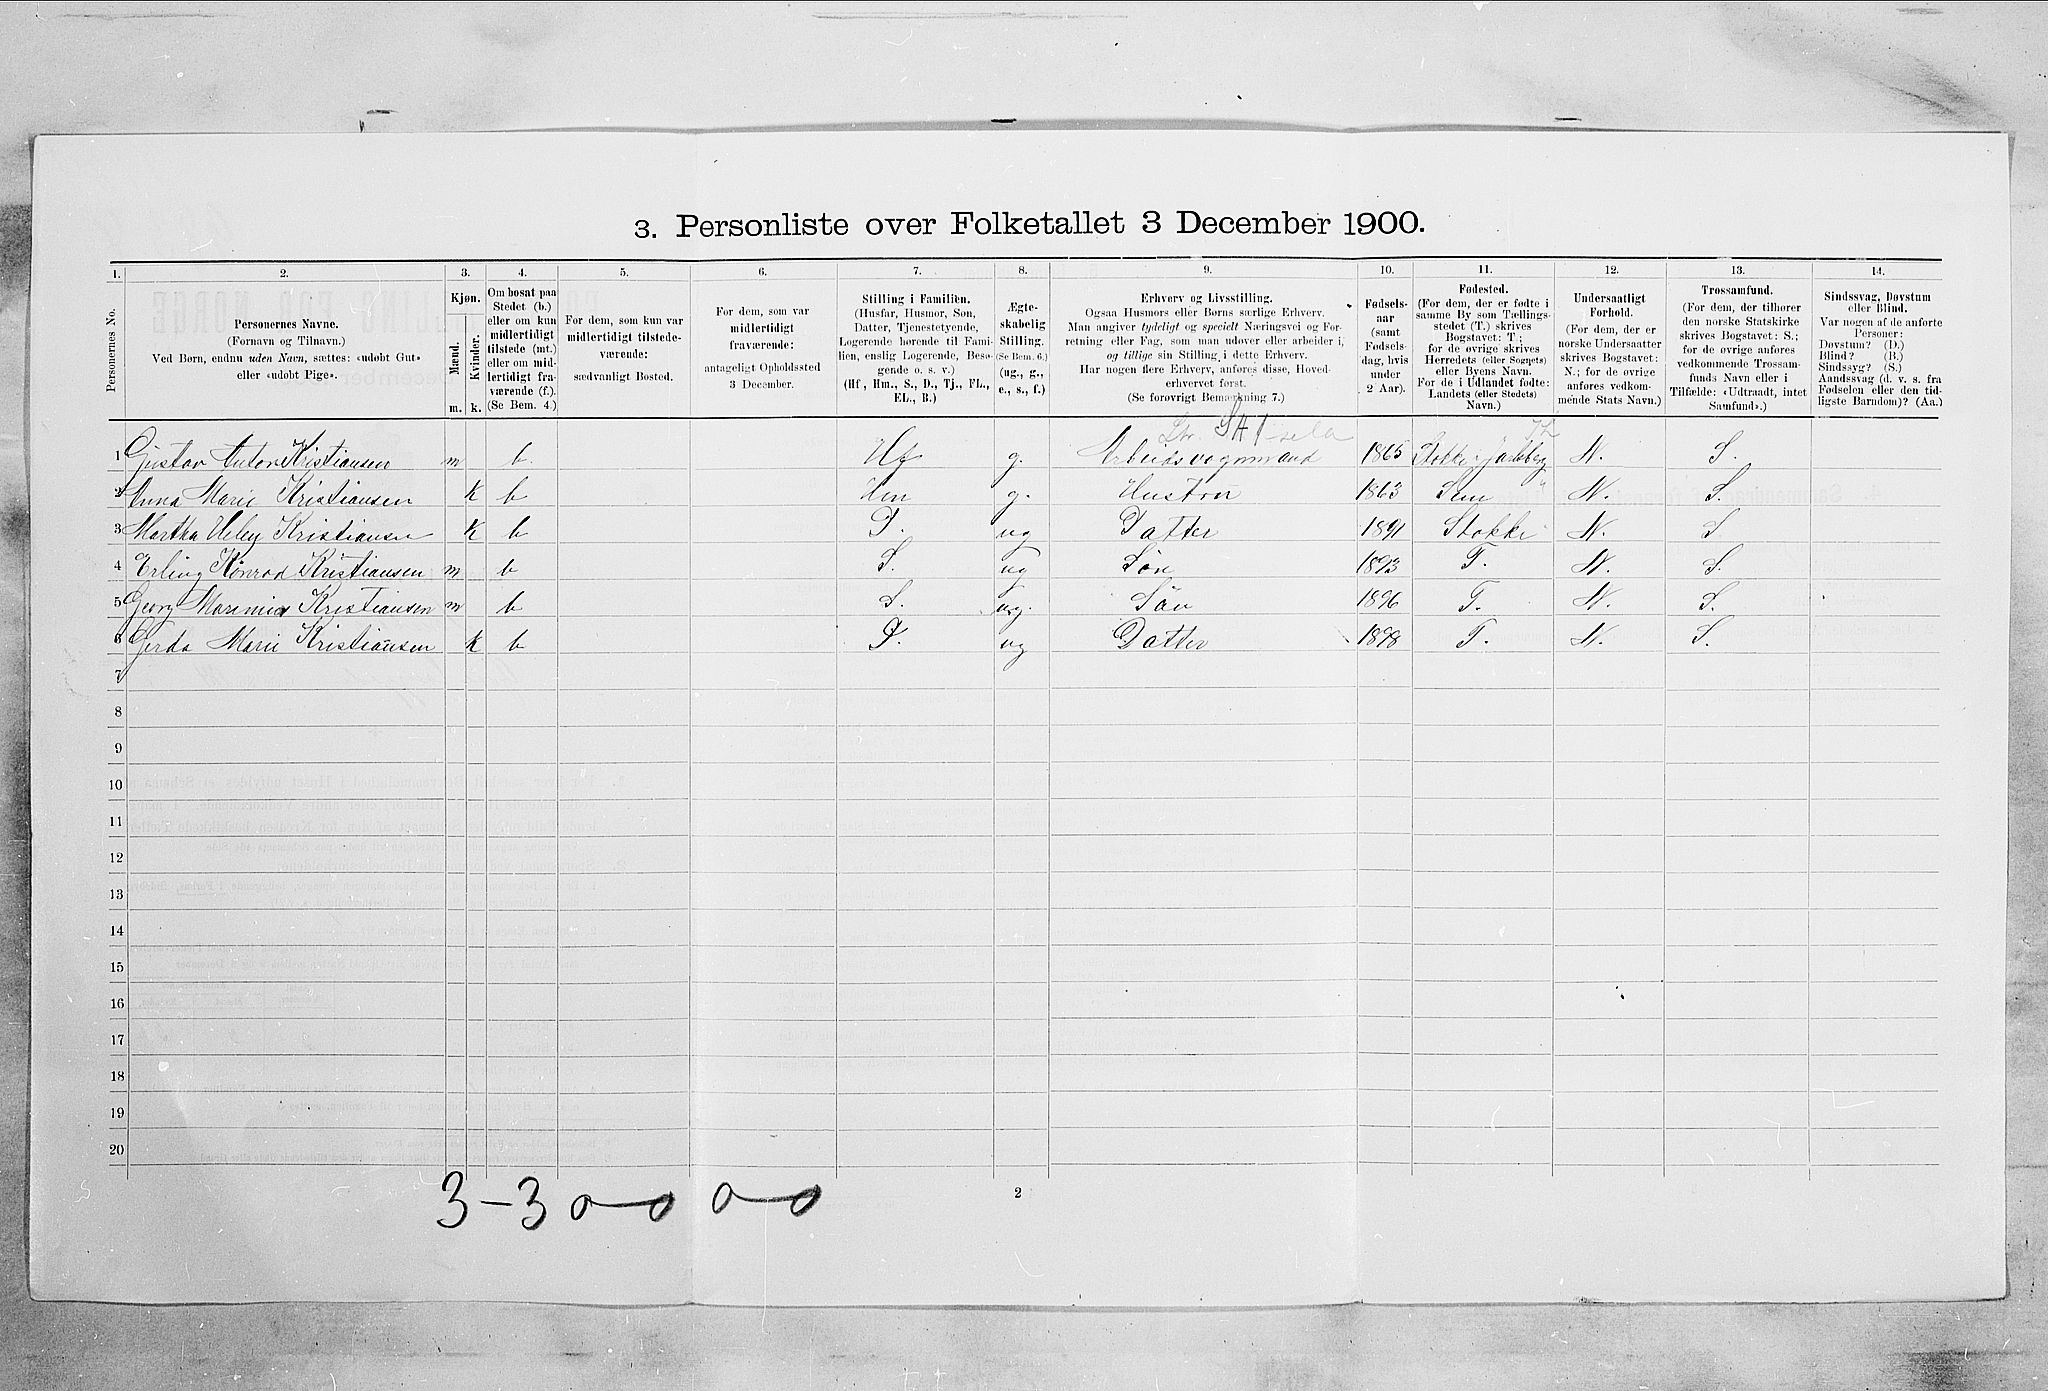 3. Personliste over Folketallet 3 December 1900.
1. 2. 3. 4. 5. 6. 7. 8. 9. 10. 11. 12. 13. 14.
Personernes No.
Personernes Navne.
(Fornavn og Tilnavn.)
Ved Børn, endnu uden Navn, sættes: «udobt Gut»
eller «udobt Pige».
Kjøn.
Mænd.
Kvinder.
m. k.
Om bosat paa
Stedet (b.)
eller om kun
midlertidigt
tilstede (mt.)
eller om mid-
lertidigt fra-
værende (f.).
(Se Bem. 4.)
For dem, som kun var
midlertidigt tilstede-
værende:
sædvanligt Bosted.
For dem, som var
midlertidigt
fraværende:
antageligt Opholdssted
3 December.
Stilling i Familien.
(Husfar, Husmor, Søn,
Datter, Tjenestetyende,
Logerende hørende til Fami-
lien, enslig Logerende, Besø-
gende o. s. v.)
(Hf., Hm., S., D., Tj., FL.,
EL., B.)
Ægte-
skabelig
Stilling.
(Se Bem. 6.)
(ug., g.,
e., s., f.)
Erhverv og Livsstilling.
Ogsaa Husmors eller Børns særlige Erhverv.
Man angiver tydeligt og specielt Næringsvei og For-
retning eller Fag, som man udøver eller arbeider i,
og tillige sin Stilling i dette Erhverv.
Har nogen flere Erhverv, anføres disse, Hoved-
erhvervet først.
(Se forøvrigt Bemærkning 7.)
Fødsels-
aar
(samt
Fødsels-
dag, hvis
under
2 Aar).
Fødested.
(For dem, der er fødte i
samme By som Tællings-
stedet (T.) skrives
Bogstavet: T.;
for de øvrige skrives
Herredets (eller Sognets)
eller Byens Navn.
For de i Udlandet fødte:
Landets (eller Stedets)
Navn.)
Undersaatligt
Forhold.
(For dem, der er
norske Undersaatter
skrives Bogstavet:
N.; for de øvrige
anføres vedkom-
mende Stats Navn.)
Trossamfund.
(For dem, der tilhører
den norske Statskirke
skrives Bogstavet: S.;
for de øvrige anføres
vedkommende Trossam-
funds Navn eller i
Tilfælde: «Udtraadt, intet
Samfund».)
Sindssvag, Døvstum
eller Blind.
Var nogen af de anførte
Personer:
Døvstum? (D.)
Blind? (B.)
Sindssyg? (S.)
Aandssvag (d. v. s. fra
Fødselen eller den tid-
ligste Barndom)? (Aa.)
1 Gustav Anton Kristiansen m b. Hf g. Arbeidsvognmand 1865 Stokke i Jarlsberg N. S.
2 Anna Marie Kristiansen K b Hm g. Hustru 1863 Sem N. S.
3 Martha Kristiansen K b D. ug Datter 1891 Stokke N. S
4 Erling Konrad Kristiansen m b S. ug Søn 1893 T. N. S.
5 Georg Kristiansen m b S. ug. Søn 1896 T. N. S.
6 Gerda Marie Kristiansen K b D. ug Datter 1898 T. N. S.
7
8
9
10
11
12
13
14
15
16
17
18
19
20
3-3 0-0 0-0
2